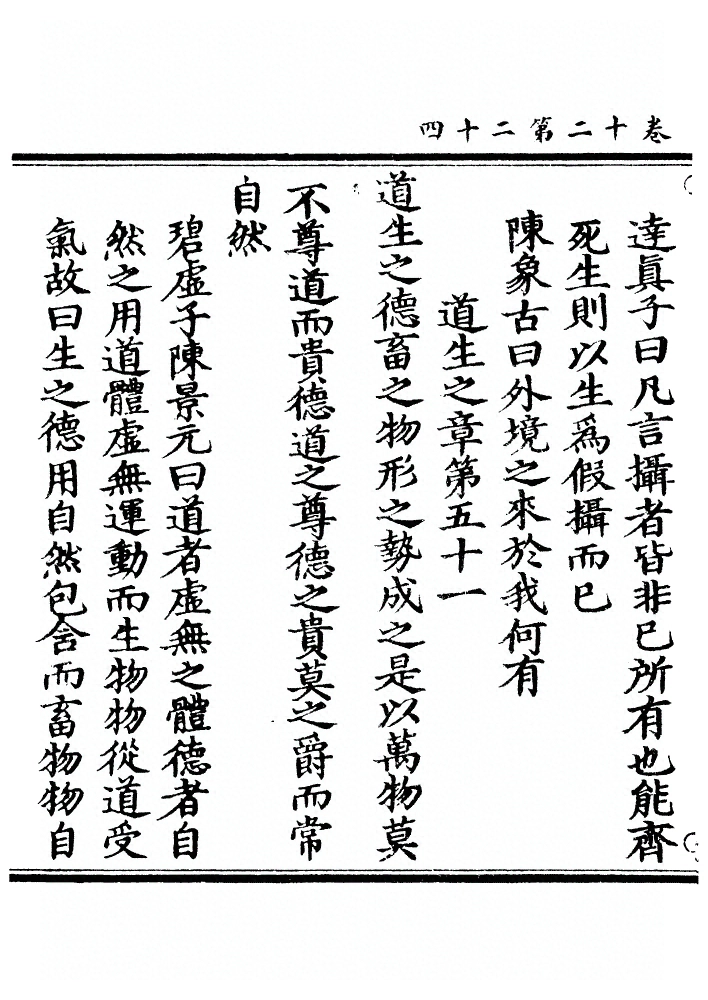 卷十二第二十四
達眞子曰凡言攝者皆非已所有也能齊
死生則以生爲假攝而已
陳象古曰外境之來於我何有
道生之章第五十一
道生之德畜之物形之勢成之是以萬物莫
不尊道而貴德道之尊德之貴莫之爵而常
自然
碧虛子陳景元曰道者虛無之體德者自
然之用道體虛無運動而生物物從道受
氣故曰生之德用自然包含而畜物物自